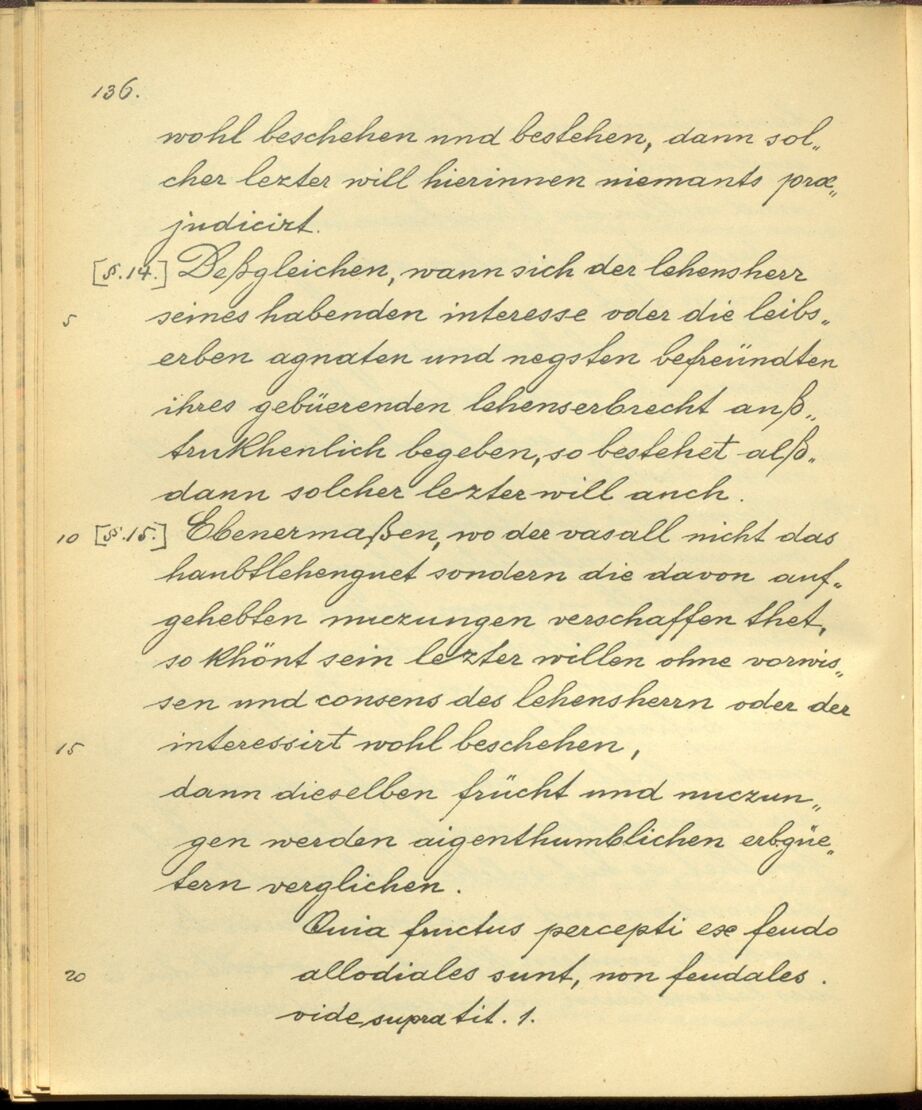 136.
wohl beschehen und bestehen, dann sol„
cher lezter will hierinnen niemants præ„
judicirt.
[§.14.] Deßgleichen, wann sich der lehensherr
5 seines habenden interesse oder die leibs„
erben agnaten und negsten befreündten
ihres gebüerenden lehenserbrecht auß„
trukhenlich begeben, so bestehet alß„
dann solcher lezter will auch.
10 [§.15.] Ebenermaßen, wo der vasall nicht das
haubtlehenguet sondern die davon auf„
gehebten nuczungen verschaffen thet,
so khönt sein lezter willen ohne vorwis„
sen und consens des lehensherrn oder der
15 interessirt wohl beschehen,
dann dieselben frücht und nuczun„
gen werden aigenthumblichen erbgüe„
tern verglichen.
Quia fructus percepti ex feudo
20 allodiales sunt, non feudales.
vide supra tit. 1.